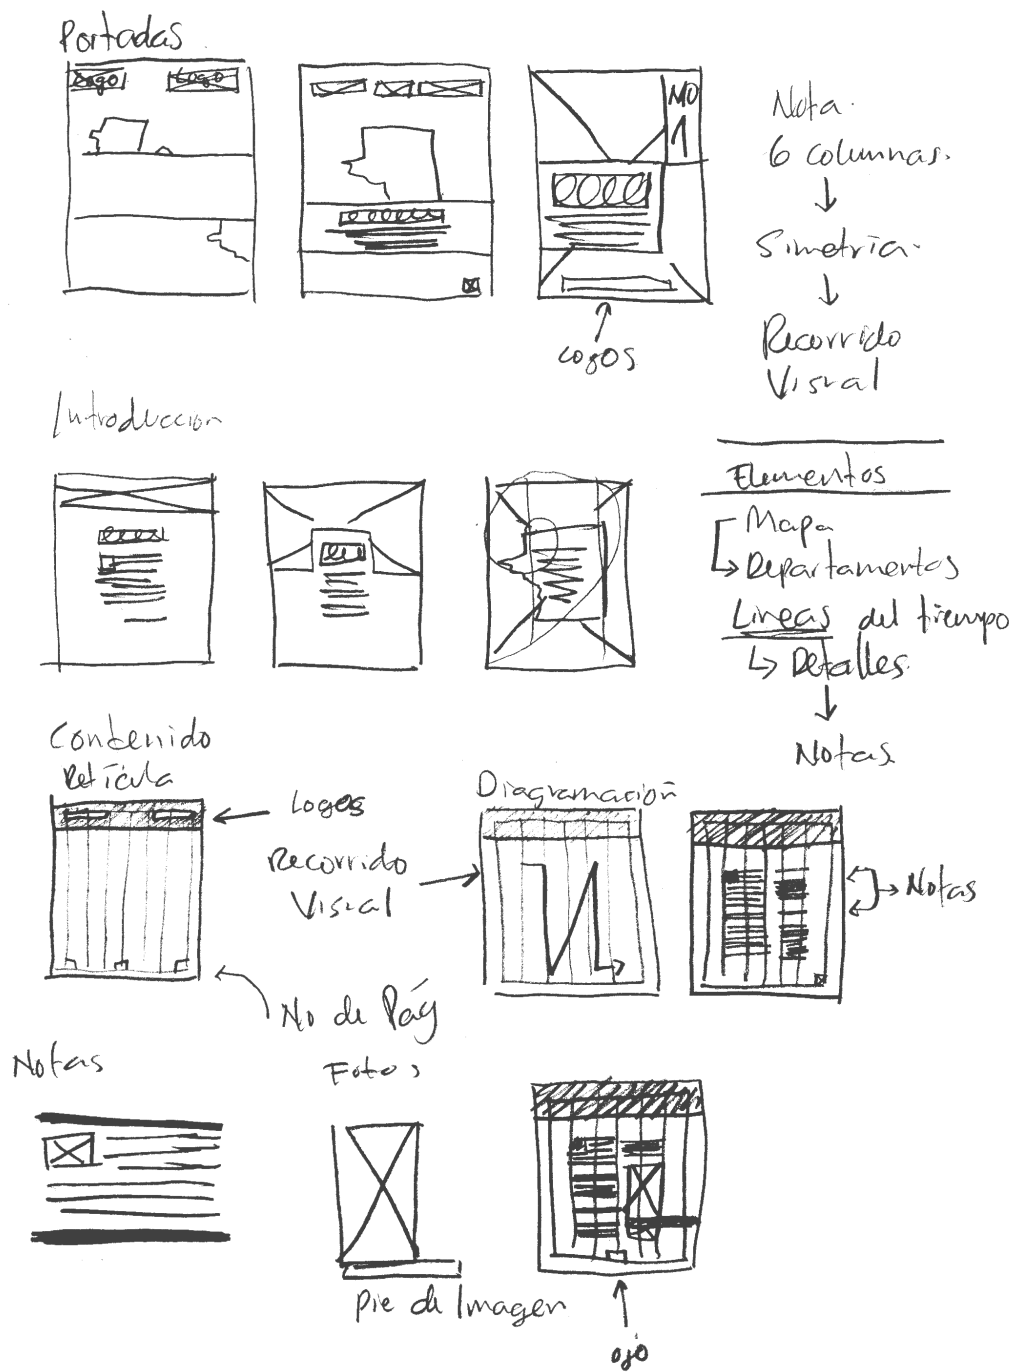 Portadas
Logo
Logo
MO
1
Logos
Nota.
6 columnas.
Simetria.
Recorrido
Visual
Introduccion
Elementos
Mapa
Departamentos
Lineas del tiempo
Detalles.
Notas.
Contenido
Retícula
Logos
Recorrido
Visual
No de Pág
Diagramación
Notas
Notas
Fotos
Pie de Imagen
ojo